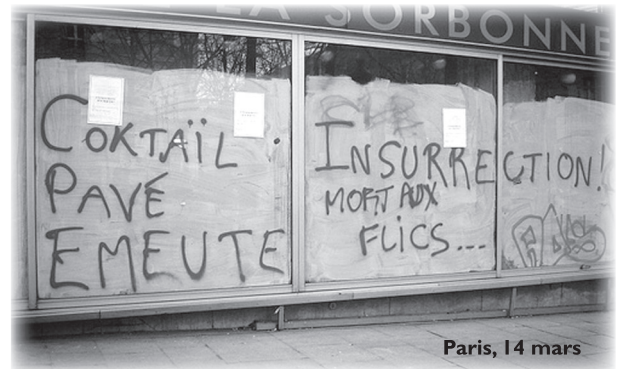 LA SORBONNE
COKTAÏL
PAVÉ
EMEUTE
INSURRECTION!
MORT AUX
FLICS...
Paris, 14 mars